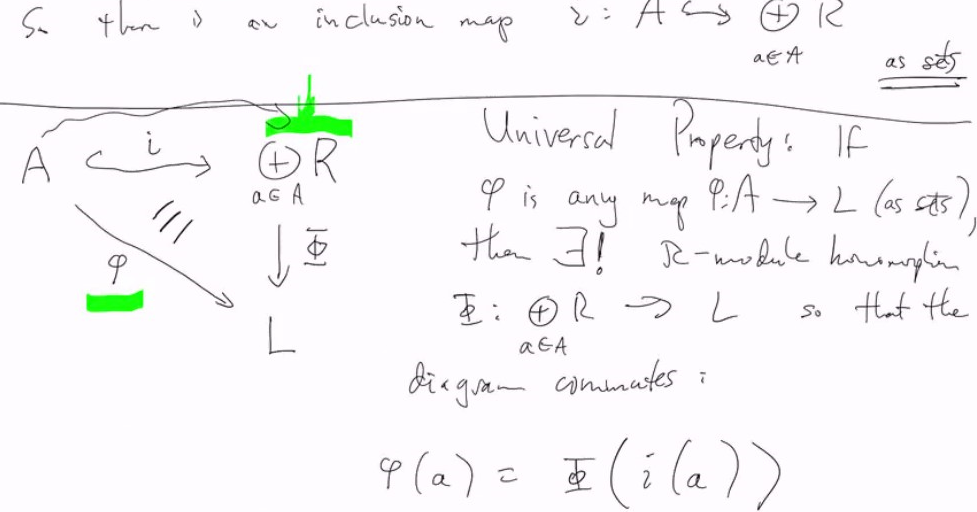 So there is an inclusion map i: A ↪ ⊕ R
a∈A
as sets
A i ⊕ R
a∈A
φ Φ
L
Universal Property: If
φ is any map φ: A → L (as sets),
then ∃! R-module homomorphism
Φ: ⊕ R → L so that the
a∈A
diagram commutes:
φ(a) = Φ(i(a))